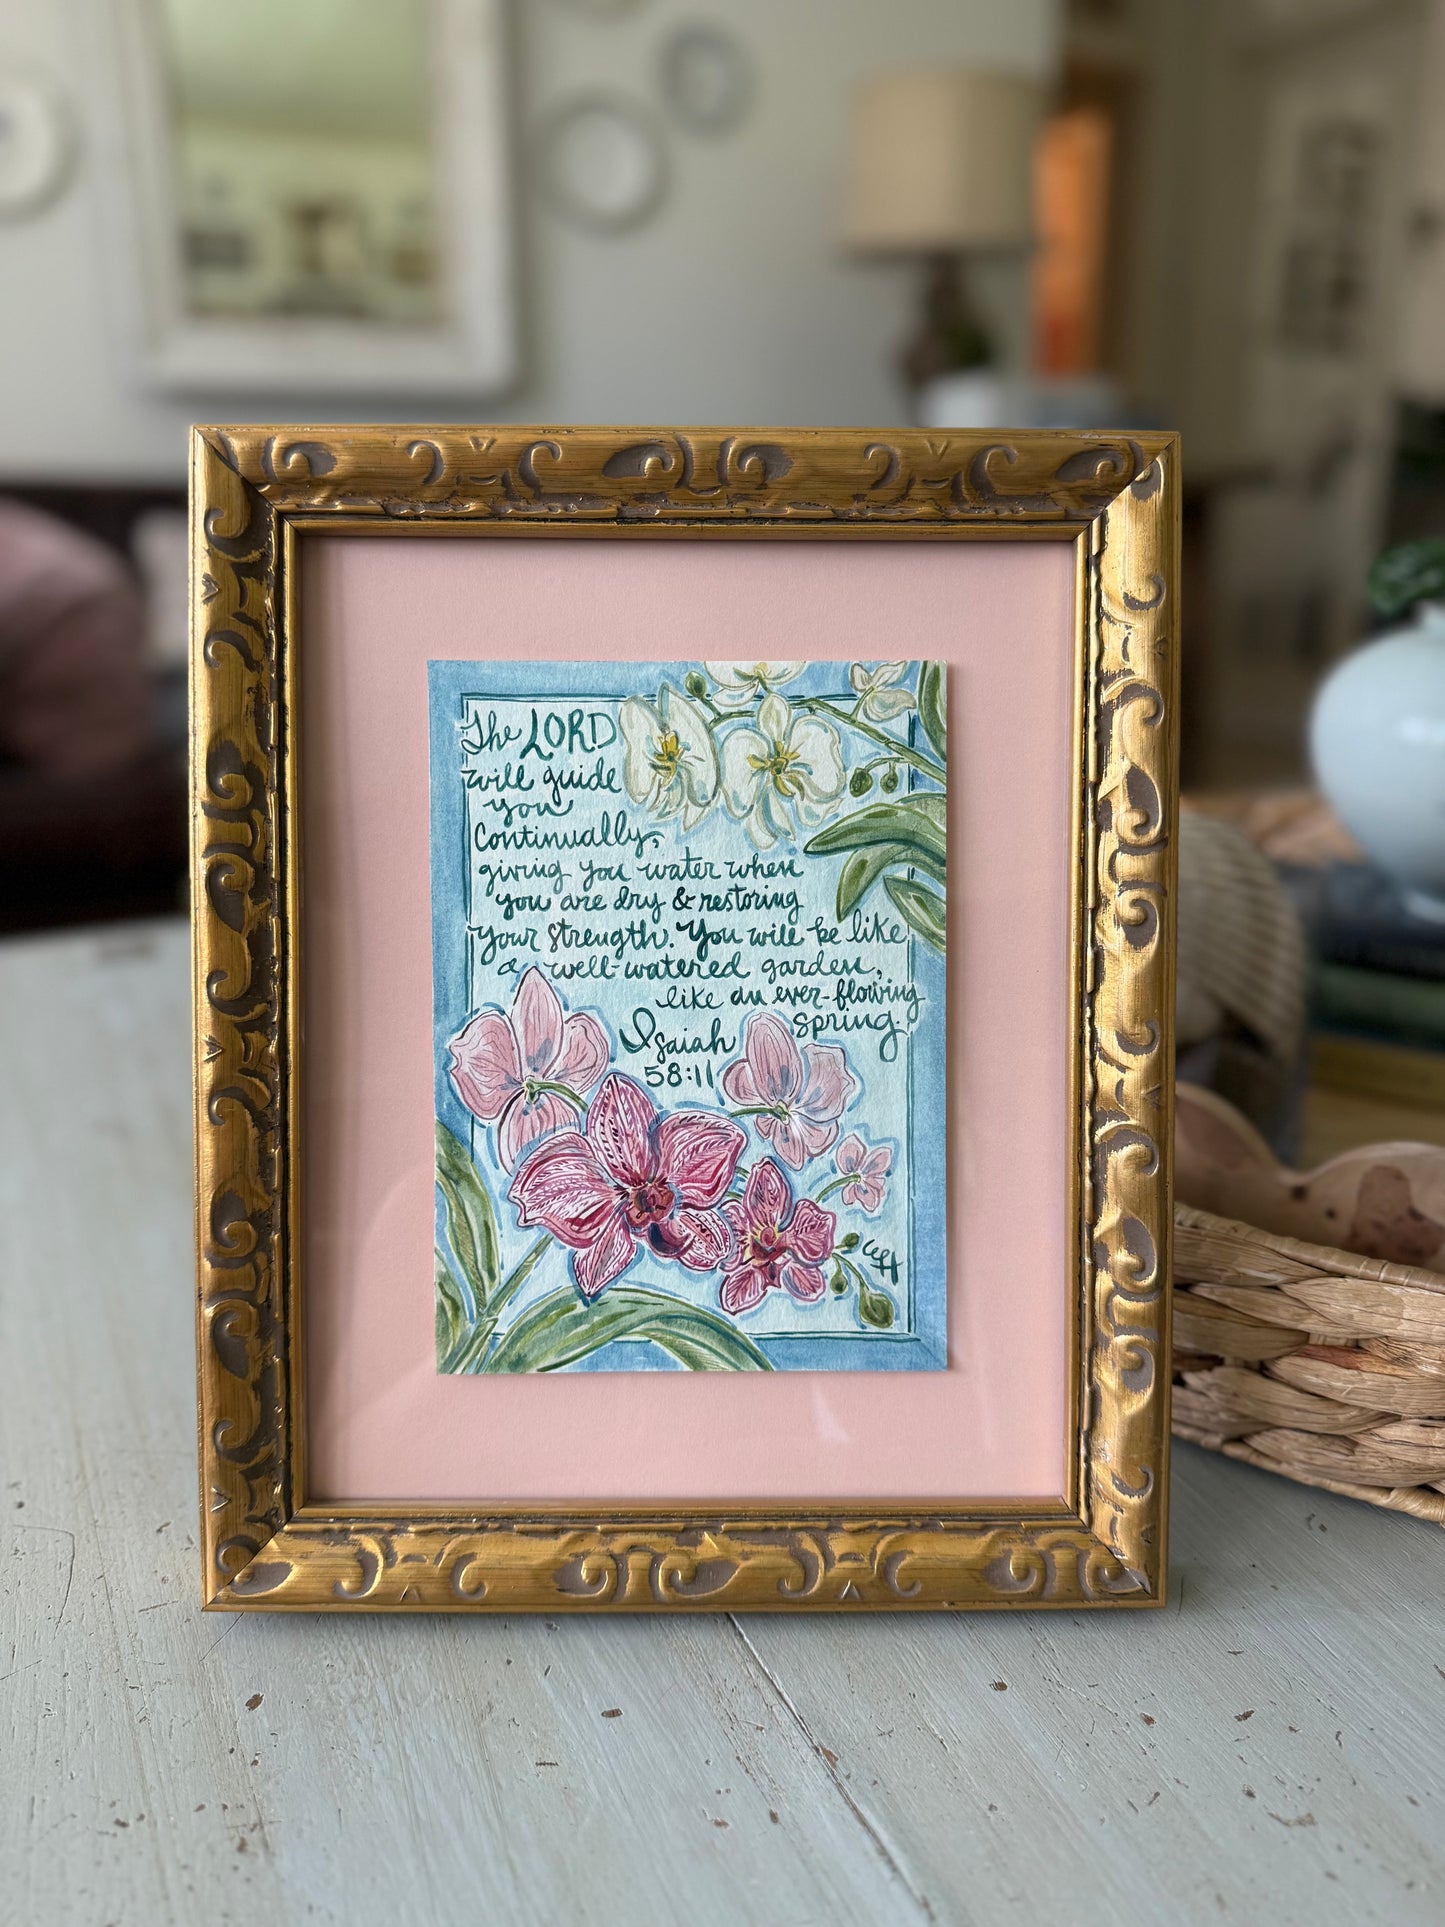 The LORD
will guide
you
Continually,
giving you water when
you are dry & restoring
your strength. You will be like
a well-watered garden,
like an ever-flowing
spring.
Isaiah
58:11
CEH